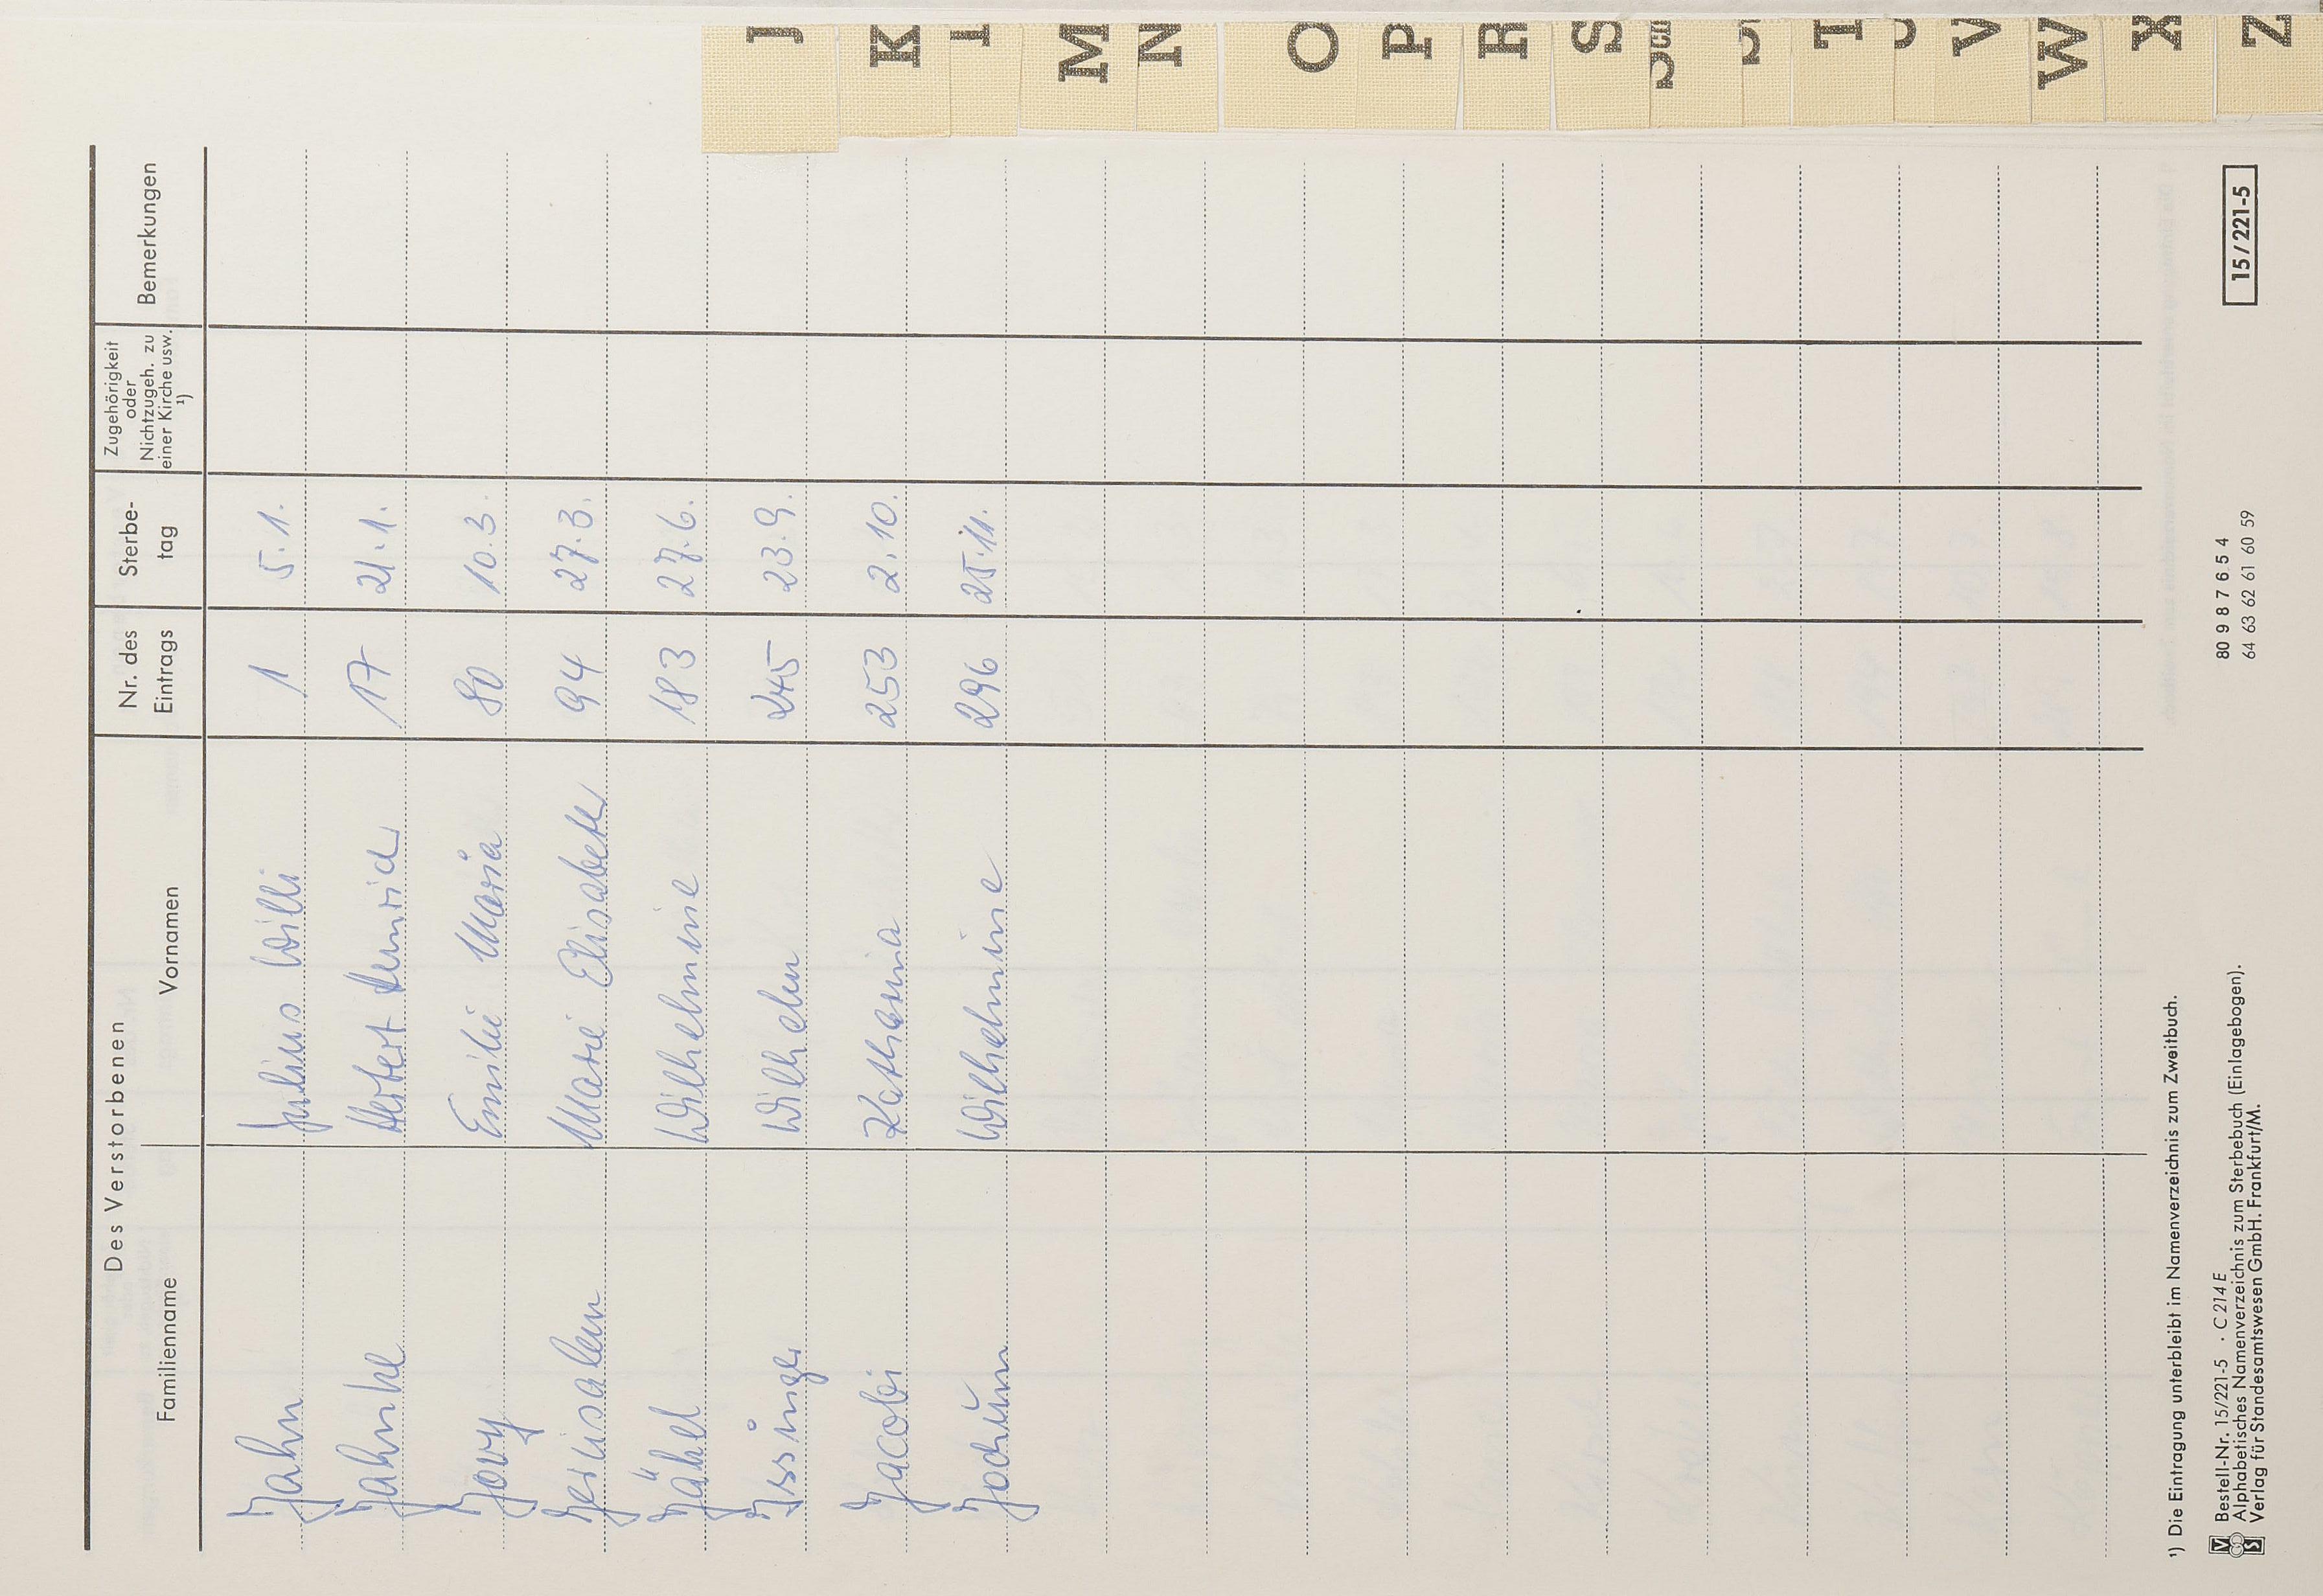 Des Verstorbenen
Familienname Vornamen Nr. des Eintrags Sterbe-tag Zugehörigkeit oder Nichtzugeh. zu einer Kirche usw. ¹) Bemerkungen
Jahn Julius Willi 1 5.1.
Jahnke Herbert Heinrich 17 21.1.
Jovy Emilie Maria 80 10.3.
Jerusalem Marie Elisabeth 94 27.3.
Jähel Wilhelmine 183 27.6.
Issinger Wilhelm 245 23.9.
Jacobi Katharina 253 2.10.
Jochum Wilhelmine 296 25.11.
¹) Die Eintragung unterbleibt im Namenverzeichnis zum Zweitbuch.
Bestell-Nr. 15/221-5 . C 214 E
Alphabetisches Namenverzeichnis zum Sterbebuch (Einlagebogen).
Verlag für Standesamtswesen GmbH. Frankfurt/M.
80 9 8 7 6 5 4
64 63 62 61 60 59
15/221-5
J
K
L
M
N
O
P
R
S
Sch
T
V
W
X
Z